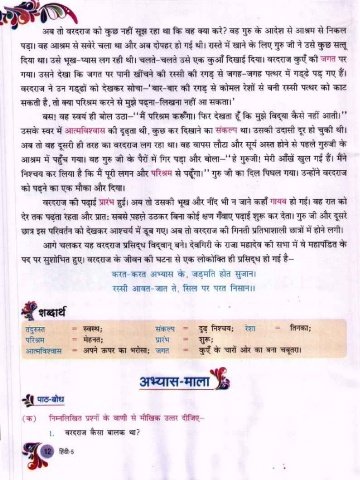 अब तो वरदराज को कुछ नहीं सूझ रहा था कि वह क्या करे? वह गुरु के आदेश से आश्रम से निकल
पड़ा। वह आश्रम से सवेरे चला था और अब दोपहर हो गई थी। रास्ते में खाने के लिए गुरु जी ने उसे कुछ सत्तू
दिया था। उसे भूख-प्यास लग रही थी। चलते-चलते उसे एक कुआँ दिखाई दिया। वरदराज कुएँ की जगत पर
गया। उसने देखा कि जगत पर पानी खींचने की रस्सी की रगड़ से जगह-जगह पत्थर में गड्ढे पड़ गए हैं।
वरदराज ने उन गड्ढों को देखकर सोचा–‘‘बार-बार की रगड़ से कोमल रेशों से बनी रस्सी पत्थर को काट
सकती है, तो क्या परिश्रम करने से मुझे पढ़ना-लिखना नहीं आ सकता।’’
बस! वह स्वयं ही बोल उठा–‘‘मैं परिश्रम करूँगा। फिर देखता हूँ कि मुझे विद्या कैसे नहीं आती।’’
उसके स्वर में आत्मविश्वास की दृढ़ता थी, कुछ कर दिखाने का संकल्प था। उसकी उदासी दूर हो चुकी थी।
अब तो वह दूसरी ही तरह का वरदराज लग रहा था। वह वापस लौटा और सूर्य अस्त होने से पहले गुरुजी के
आश्रम में पहुँच गया। वह गुरु जी के पैरों में गिर पड़ा और बोला–‘‘हे गुरुजी! मेरी आँखें खुल गई हैं। मैंने
निश्चय कर लिया है कि मैं पूरी लगन और परिश्रम से पढ़ूँगा।’’ गुरु जी का दिल पिघल गया। उन्होंने वरदराज
को पढ़ने का एक मौका और दिया।
वरदराज की पढ़ाई प्रारंभ हुई। अब तो उसकी भूख और नींद भी न जाने कहाँ गायब हो गई। वह रात को
देर तक पढ़ता रहता और प्रातः सबसे पहले उठकर बिना कोई क्षण गँवाए पढ़ाई शुरू कर देता। गुरु जी और दूसरे
छात्र इस परिवर्तन को देखकर आश्चर्य में डूब गए। अब तो वरदराज की गिनती प्रतिभाशाली छात्रों में होने लगी।
आगे चलकर यह वरदराज प्रसिद्ध विद्वान् बने। देवगिरी के राजा महादेव की सभा में वे महापंडित के
पद पर सुशोभित हुए। वरदराज के जीवन की घटना से एक लोकोक्ति ही प्रसिद्ध हो गई है–
करत-करत अभ्यास के, जड़मति होत सुजान।
रस्सी आवत-जात ते, सिल पर परत निसान।।
शब्दार्थ
तंदुरुस्त = स्वस्थ; संकल्प = दृढ़ निश्चय; रेशा = तिनका;
परिश्रम = मेहनत; प्रारंभ = शुरू;
आत्मविश्वास = अपने ऊपर का भरोसा; जगत = कुएँ के चारों ओर का बना चबूतरा।
अभ्यास-माला
पाठ-बोध
(क) निम्नलिखित प्रश्नों के वाणी से मौखिक उत्तर दीजिए–
1. वरदराज कैसा बालक था?
12 हिंदी-5